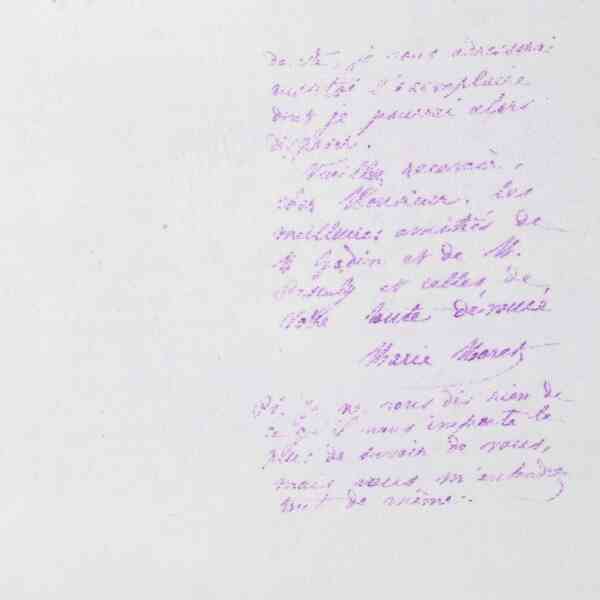 je vous adresserai
l'exemplaire
dont je pourrai alors
disposer.
Veuillez recevoir,
cher Monsieur, les
meilleures amitiés de
M. Godin et de M.
et celles de
votre toute dévouée
Marie Moret
PS. Je ne vous dis rien de
ce qu'il nous importe le
plus de savoir de vous,
mais vous m'entendez
tout de même.